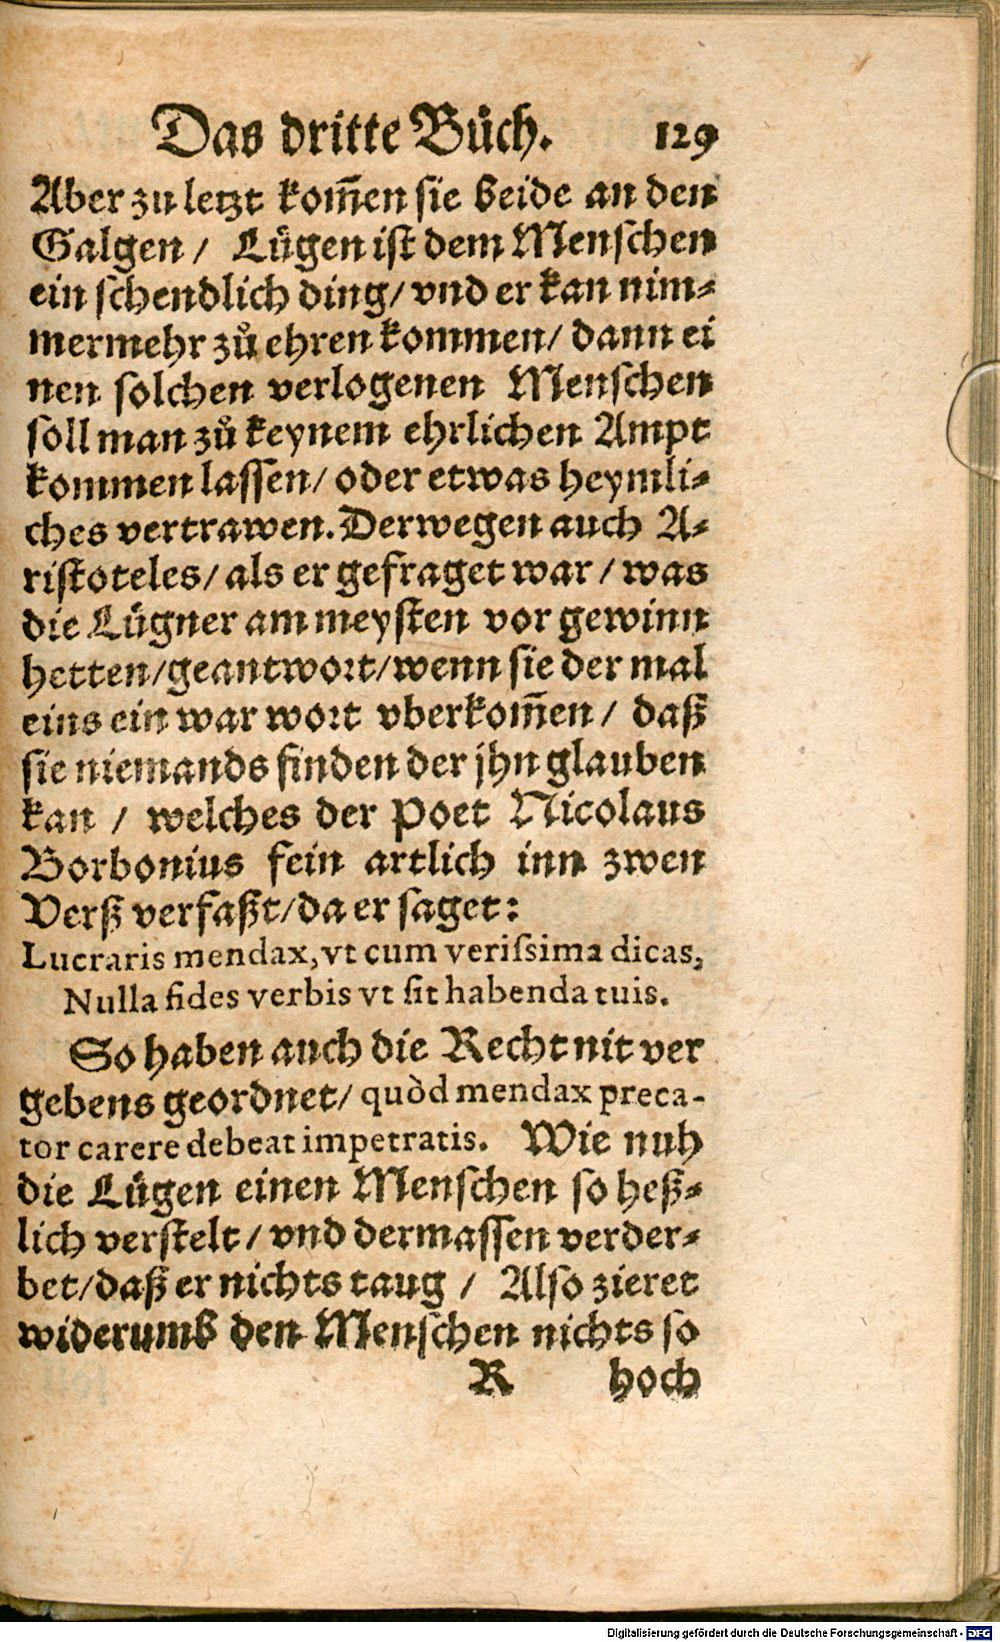 Das dritte Buͤch. 129
Aber zu letzt kom̃en sie beide an den
Galgen / Luͤgen ist dem Menschen
ein schendlich ding/ vnd er kan nim⸗
mermehr zuͦ ehren kommen/ dann ei
nen solchen verlogenen Menschen
soll man zuͦ keynem ehrlichen Ampt
kommen lassen/ oder etwas heymli⸗
ches vertrawen. Derwegen auch A⸗
ristoteles/ als er gefraget war / was
die Luͤgner am meysten vor gewinn
hetten/geantwort/wenn sie der mal
eins ein war wort vberkom̃en / daß
sie niemands finden der jhn glauben
kan / welches der Poet Nicolaus
Borbonius fein artlich inn zwen
Verß verfaßt/da er saget:
Lucraris mendax, vt cum verissima dicas,
Nulla fides verbis vt sit habenda tuis.
So haben auch die Recht nit ver
gebens geordnet/ quòd mendax preca-
tor carere debeat impetratis. Wie nuh
die Luͤgen einen Menschen so heß⸗
lich verstelt / vnd dermassen verder⸗
bet/daß er nichts taug / Also zieret
widerumb den Menschen nichts so
R hoch
Digitalisierung gefördert durch die Deutsche Forschungsgemeinschaft - DFG